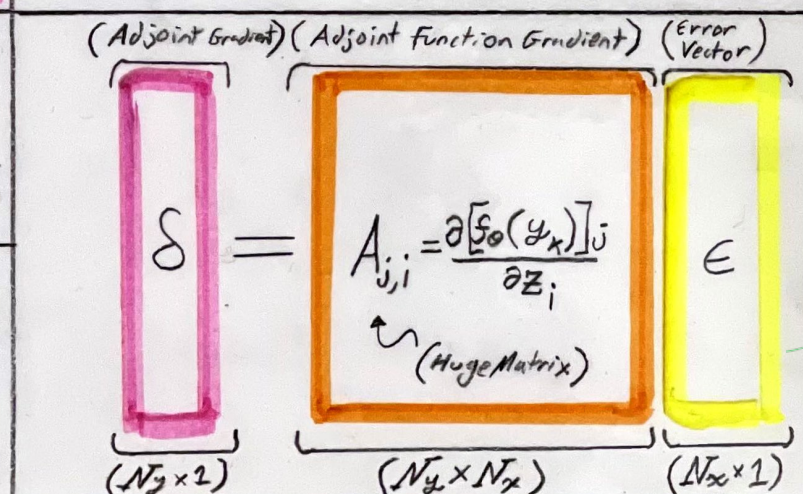 (Adjoint Gradient) (Adjoint Function Gradient) (Error Vector)
δ = A_{j,i} = ∂[f_θ(y_k)]_j / ∂z_i ϵ
(Huge Matrix)
(N_y × 1) (N_y × N_x) (N_x × 1)